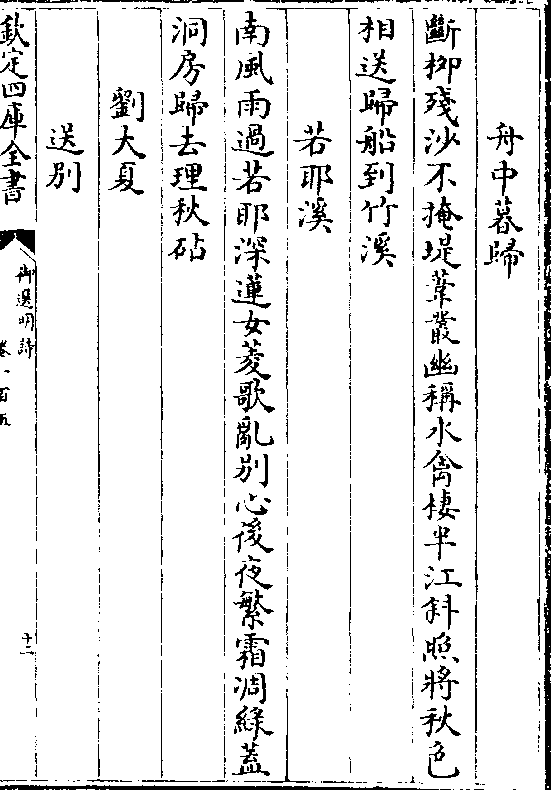 舟中暮歸
斷柳殘沙不掩堤葦叢幽稱水禽棲半江斜照將秋色
相送歸船到竹溪
若耶溪
南風雨過若耶深蓮女菱歌亂别心後夜繁霜凋綠蓋
洞房歸去理秋砧
劉大夏
送别
欽定四庫全書
御選明詩
卷一百五
十三